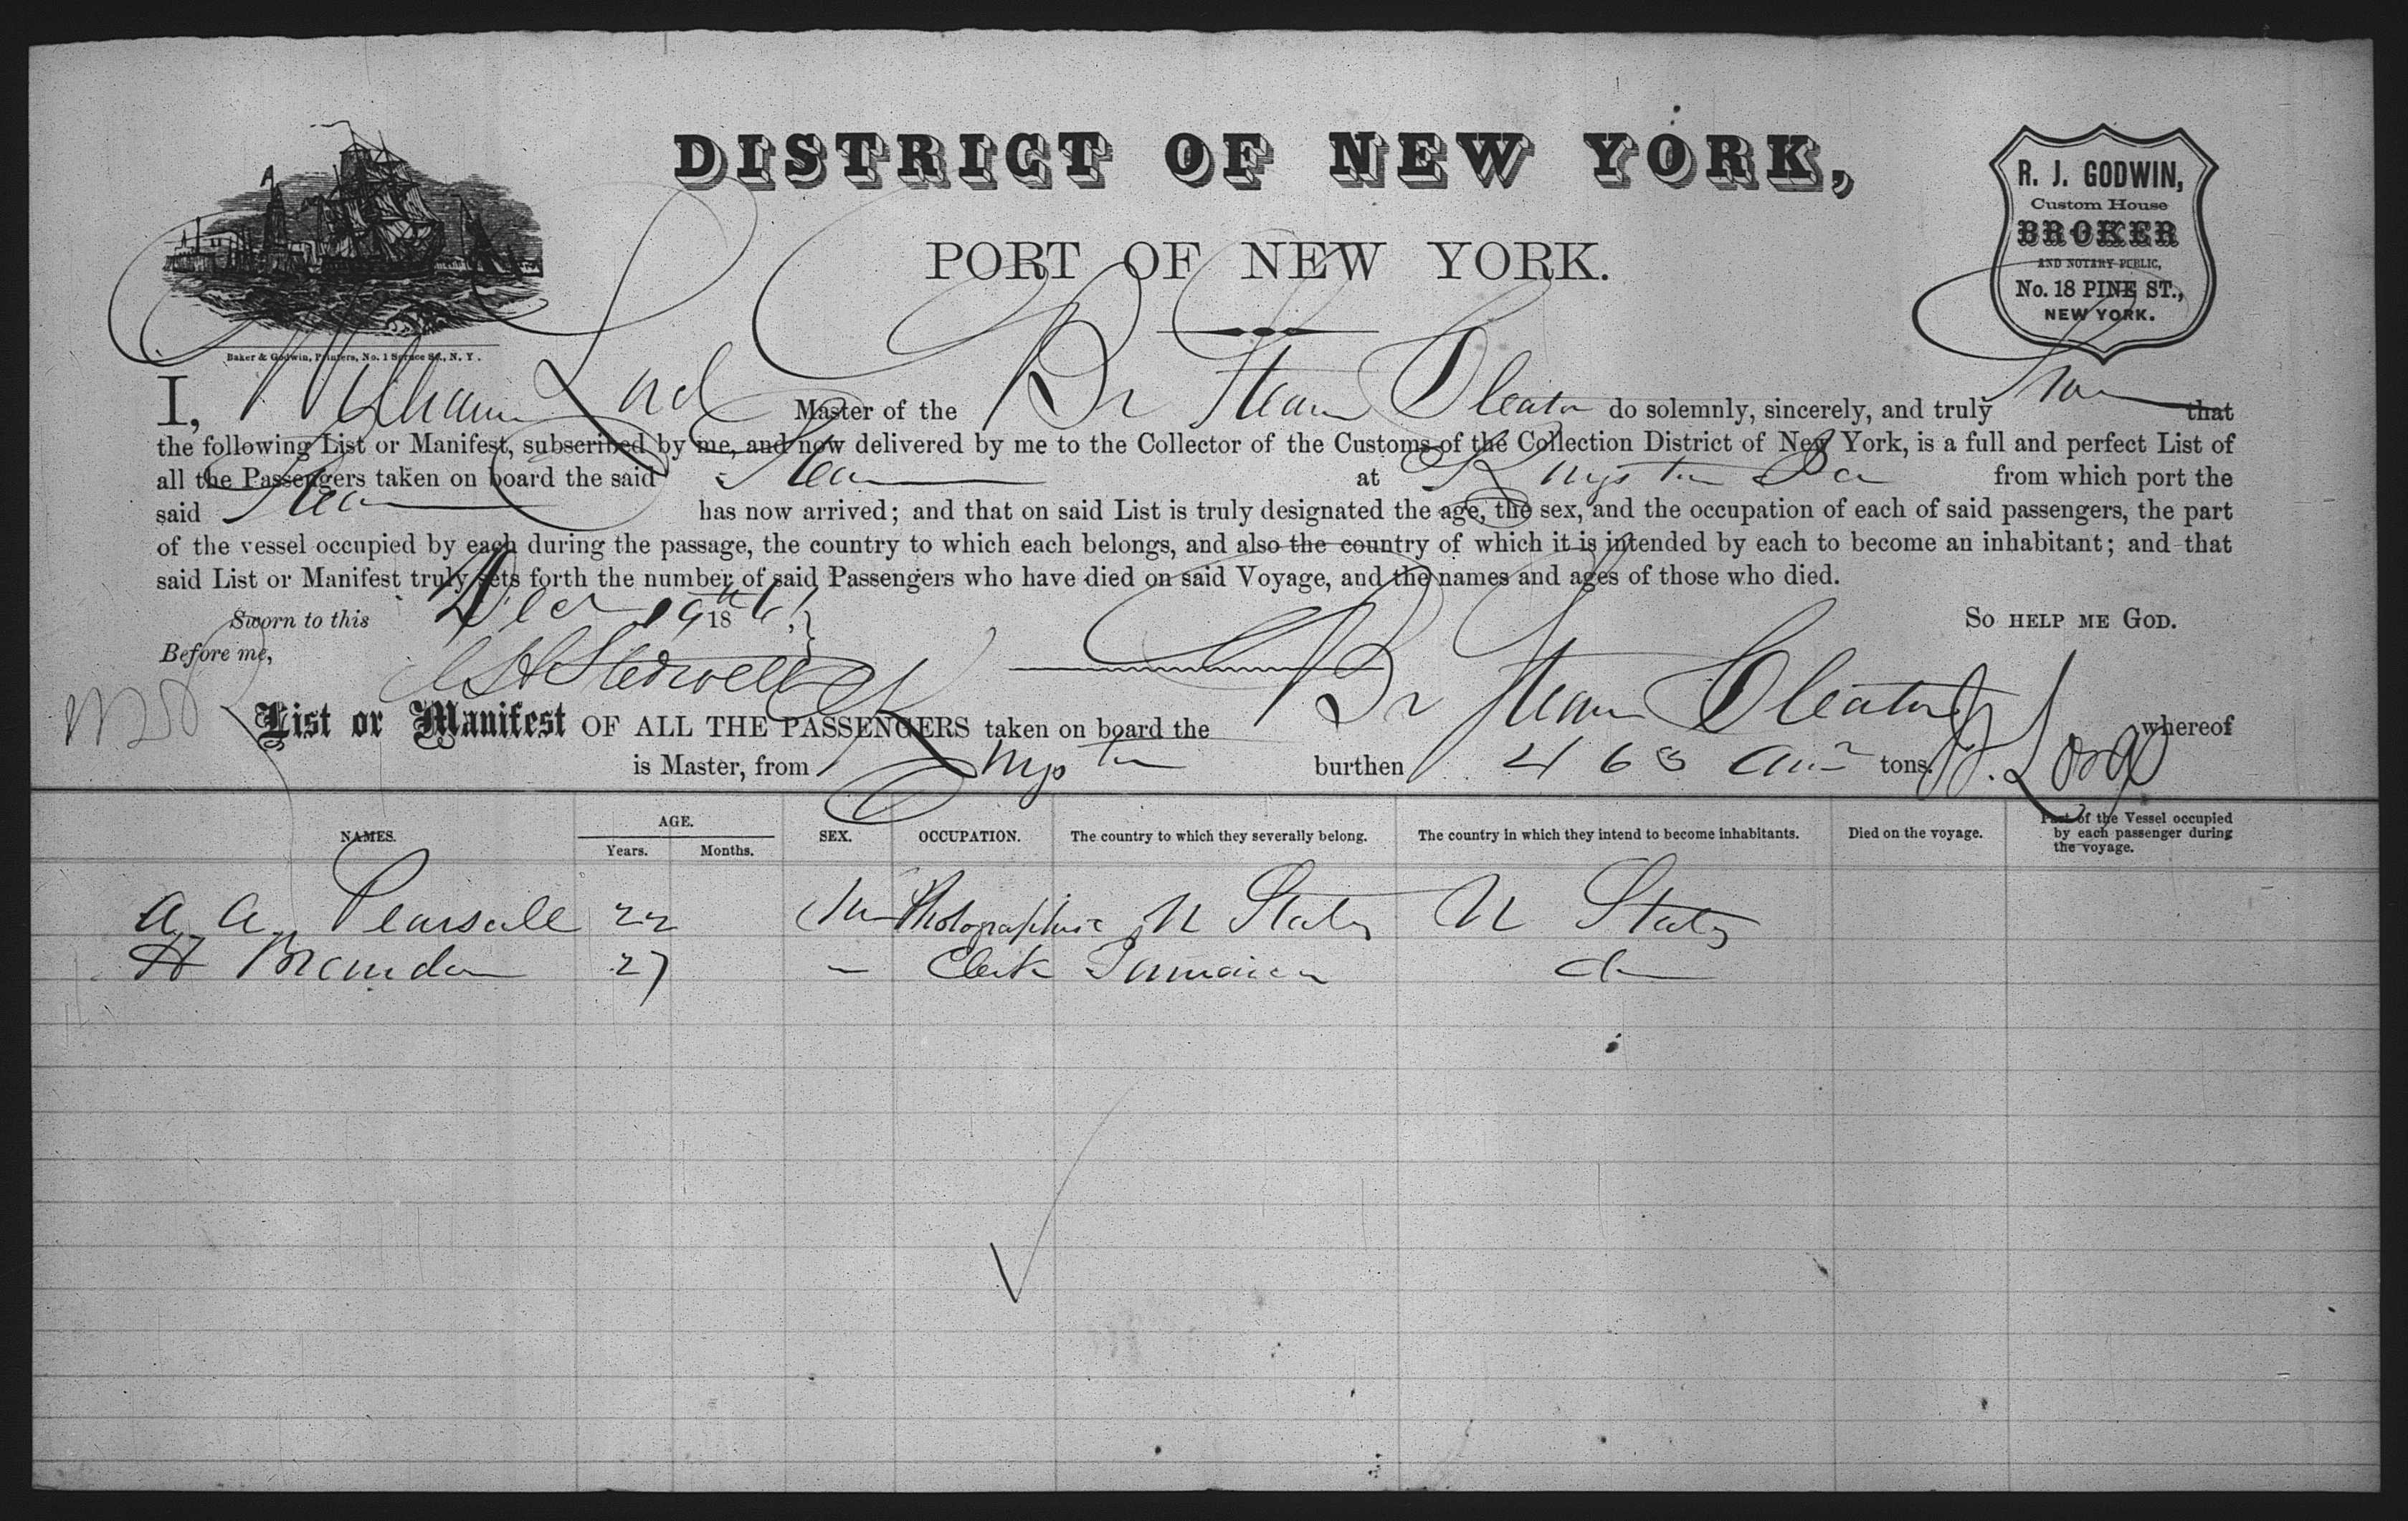 DISTRICT OF NEW YORK,
PORT OF NEW YORK.
R. J. GODWIN,
Custom House
BROKER
AND NOTARY PUBLIC,
No. 18 PINE ST.,
NEW YORK.
Baker & Godwin, Printers, No. 1 Spruce St., N. Y.
I, William Lord Master of the Br Steam do solemnly, sincerely, and truly that
the following List or Manifest, subscribed by me, and now delivered by me to the Collector of the Customs of the Collection District of New York, is a full and perfect List of
all the Passengers taken on board the said Steam at Kingston Ja from which port the
said Steam has now arrived; and that on said List is truly designated the age, the sex, and the occupation of each of said passengers, the part
of the vessel occupied by each during the passage, the country to which each belongs, and also the country of which it is intended by each to become an inhabitant; and that
said List or Manifest truly sets forth the number of said Passengers who have died on said Voyage, and the names and ages of those who died.
Sworn to this Dec 19th 18 SO HELP ME GOD.
Before me,
List or Manifest OF ALL THE PASSENGERS taken on board the Br Steam whereof
W. Lord
is Master, from Kingston burthen 468 tons.
NAMES. AGE. Years. Months. SEX. OCCUPATION. The country to which they severally belong. The country in which they intend to become inhabitants. Died on the voyage. Part of the Vessel occupied by each passenger during the voyage.
A. A. Pearsall 22 M U States U States
H Brandon 27 Clerk Jamaica do